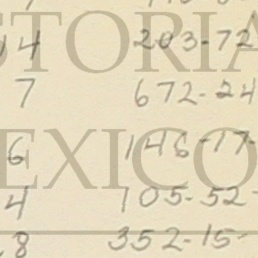 14 203-72
7 672-24
6 146-17-
4 105-52-
8 352-15-